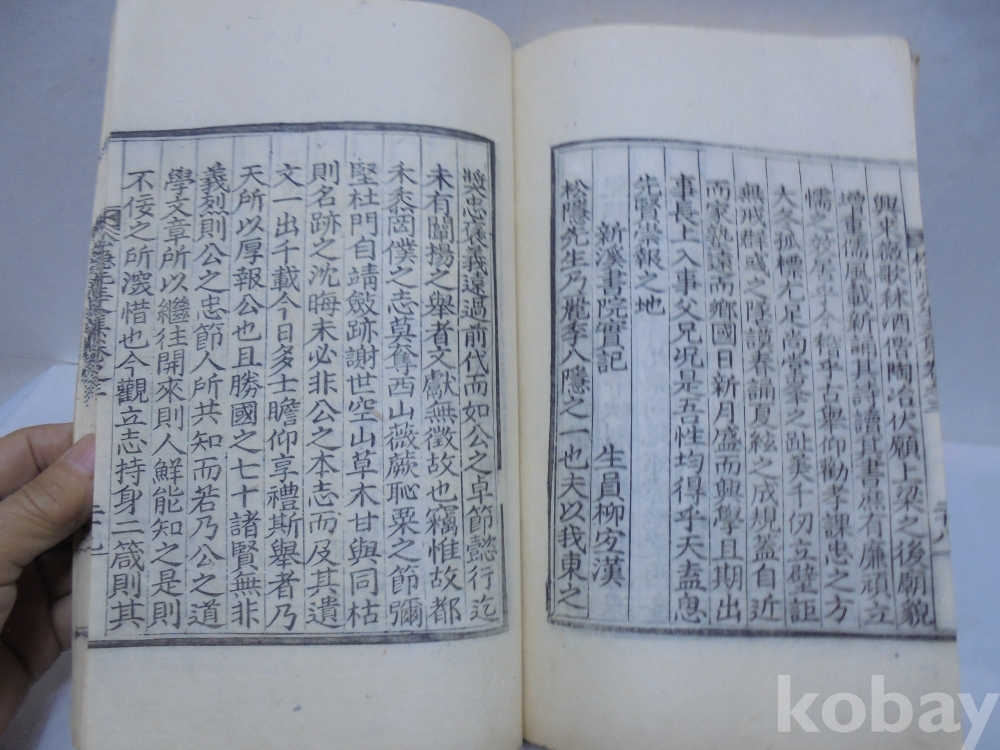 興來薇歌秫酒偕陶冶伏願上梁之後廟貌
增畫儒風載新誦其詩讀其書庶有廉頑立
懦之效居乎今稽乎古擧仰勸孝課忠之方
大冬孤標尤足尙堂峯之趾美千仞立壁詎
無戒群彧之隂讀春誦夏絃之成規蓋自近
而家孰遠而鄉國日新月盛而興學且期出
事長上入事父兄况是吾性均得乎天盍思
先賢崇報之地
新溪書院實記
生員柳漢
松隱先生乃麗季八隱之一也夫以我東之
奬忠褒義遠過前代而如公之卓節懿行迄
未有闡揚之舉者文獻無徵故也竊惟故都
禾黍罔僕之志莫奪西山薇蕨恥粟之節彌
堅杜門自靖斂跡謝世空山草木甘與同枯
則名跡之沈晦未必非公之本志而及其遺
文一出千載今日多士瞻仰享禮斯舉者乃
天所以厚報公也且勝國之七十諸賢無非
義烈則公之忠節人所共知而若乃公之道
學文章所以繼往開來則人鮮能知之是則
不佞之所深惜也今觀立志持身二箴則其
kobay